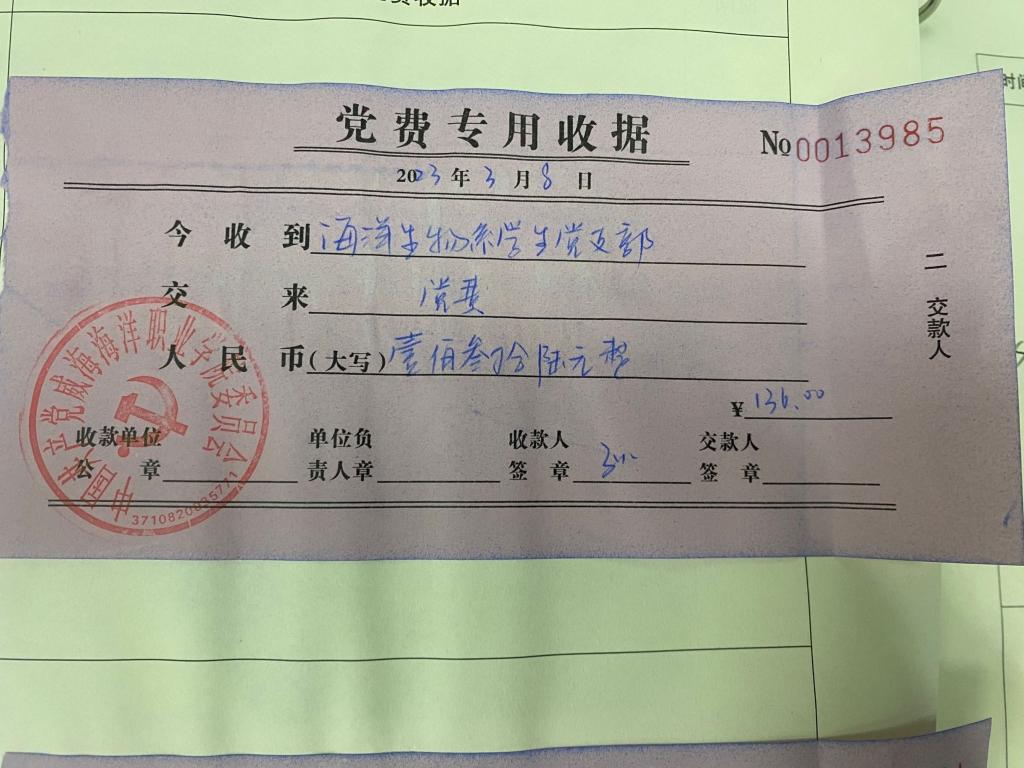 费收据
时间
党费专用收据
No 0013985
2023年3月8日
今收到海洋生物系学生党支部
交来 党费
人民币(大写)壹佰叁拾陆元整
¥136.00
收款单位公章
单位负责人章
收款人签章
交款人签章
二 交款人
中国共产党威海海洋职业学院委员会